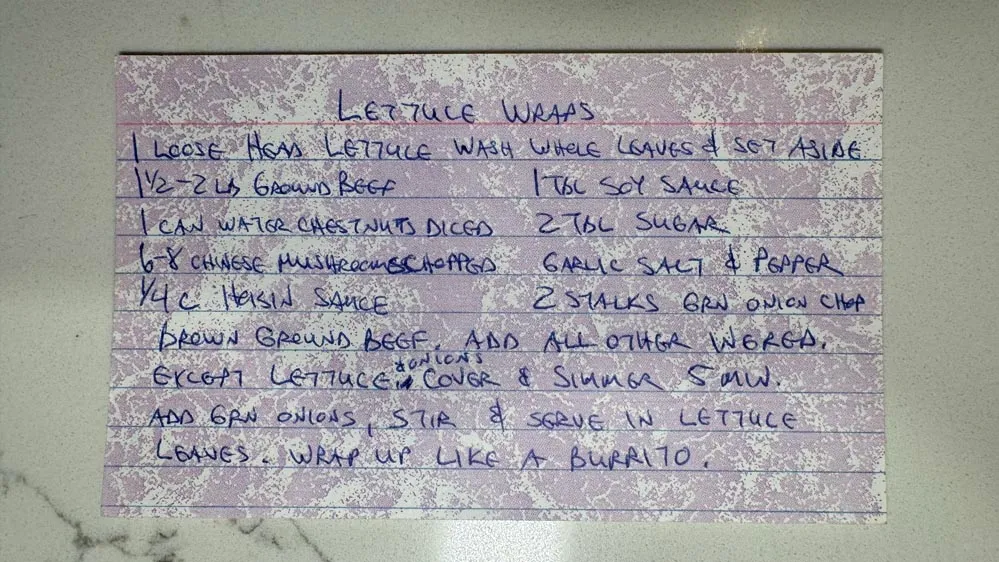 LETTUCE WRAPS
1 LOOSE HEAD LETTUCE WASH WHOLE LEAVES & SET ASIDE
1 1/2-2 LB GROUND BEEF 1 TBL SOY SAUCE
1 CAN WATER CHESTNUTS DICED 2 TBL SUGAR
6-8 CHINESE MUSHROOMS CHOPPED GARLIC SALT & PEPPER
1/4 C HOISIN SAUCE 2 STALKS GRN ONION CHOP
BROWN GROUND BEEF. ADD ALL OTHER INGRED.
EXCEPT LETTUCE & ONIONS. COVER & SIMMER 5 MIN.
ADD GRN ONIONS, STIR & SERVE IN LETTUCE
LEAVES. WRAP UP LIKE A BURRITO.